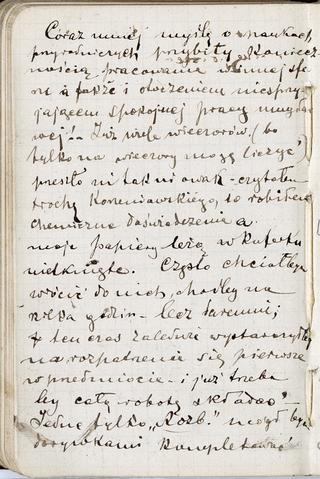 Coraz mniej myślę o naukach
przyrodniczych, przybity koniecz-
nością pracowania w innej sfe-
rze a także i otoczeniem niesprzy-
jającem spokojnej pracy
Już wiele wieczorów (bo
tylko na wieczory mogę liczyć)
przeszło mi tak i owak - czytałem
trochę Korzeniowskiego, to robiłem
chemiczne doświadczenia a
moje papiery leżą w kuferku
nietknięte. Często chciałbym
wrócić do nich, choćby na
kilka godzin - lecz daremnie;
ten czas zaledwie wystarczyłby
na rozpatrzenie się pierwsze
w przedmiocie - i już trzeba
by całą robotę składać -
Jedne tylko „Rozb." mogę
dorywkami kompletować